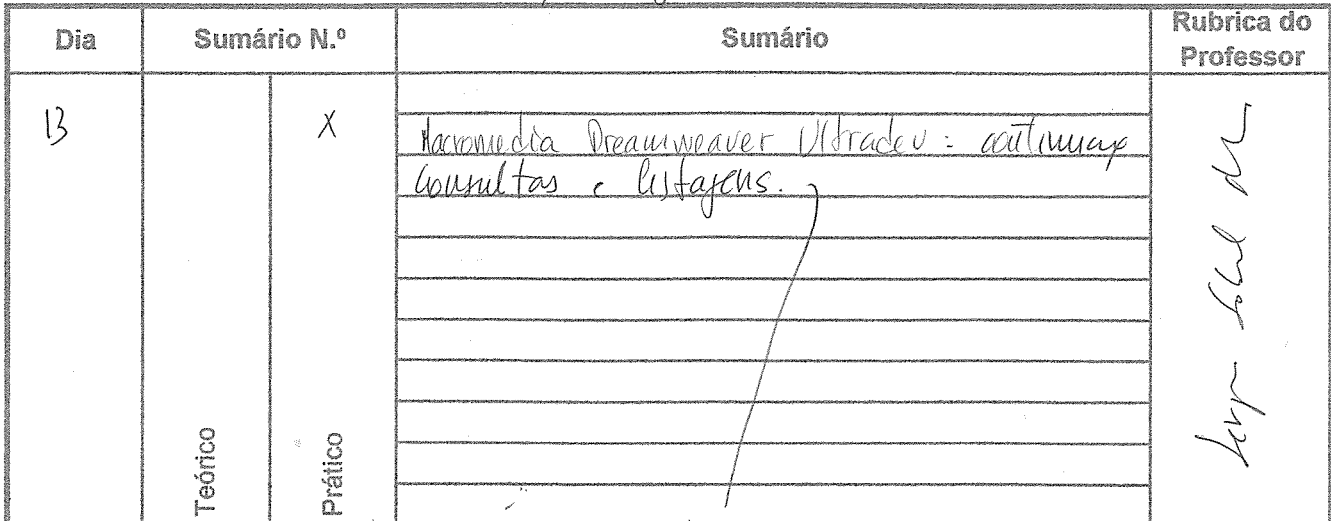 Dia Sumário N.º Sumário Rubrica do Professor
13 X Macromedia Dreamweaver Ultradev: continuação
Consultas e listagens.
Teórico Prático